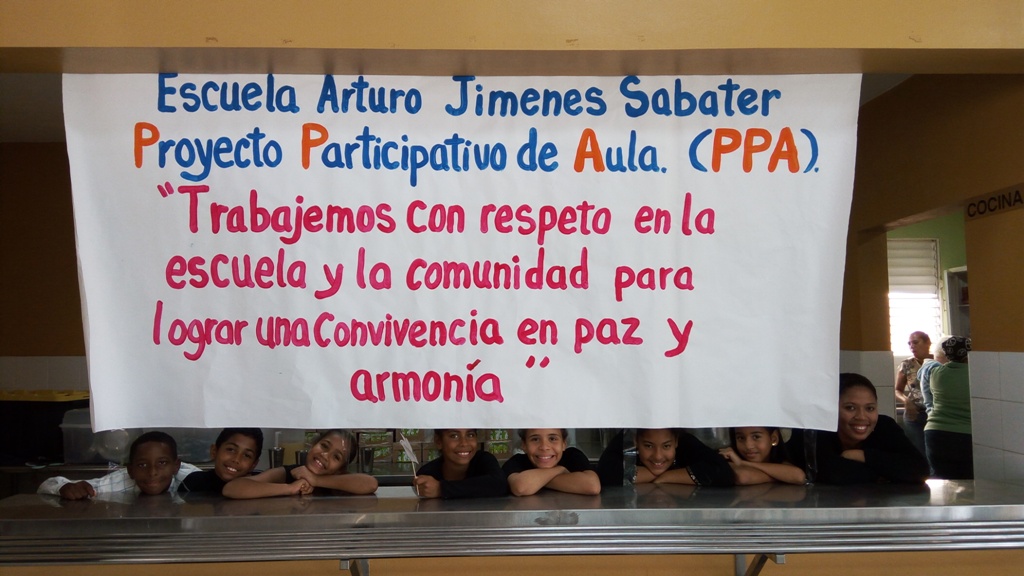 Escuela Arturo Jimenes Sabater
Proyecto Participativo de Aula. (PPA).
"Trabajemos con respeto en la
escuela y la comunidad para
lograr una convivencia en paz y
armonía"
COCINA